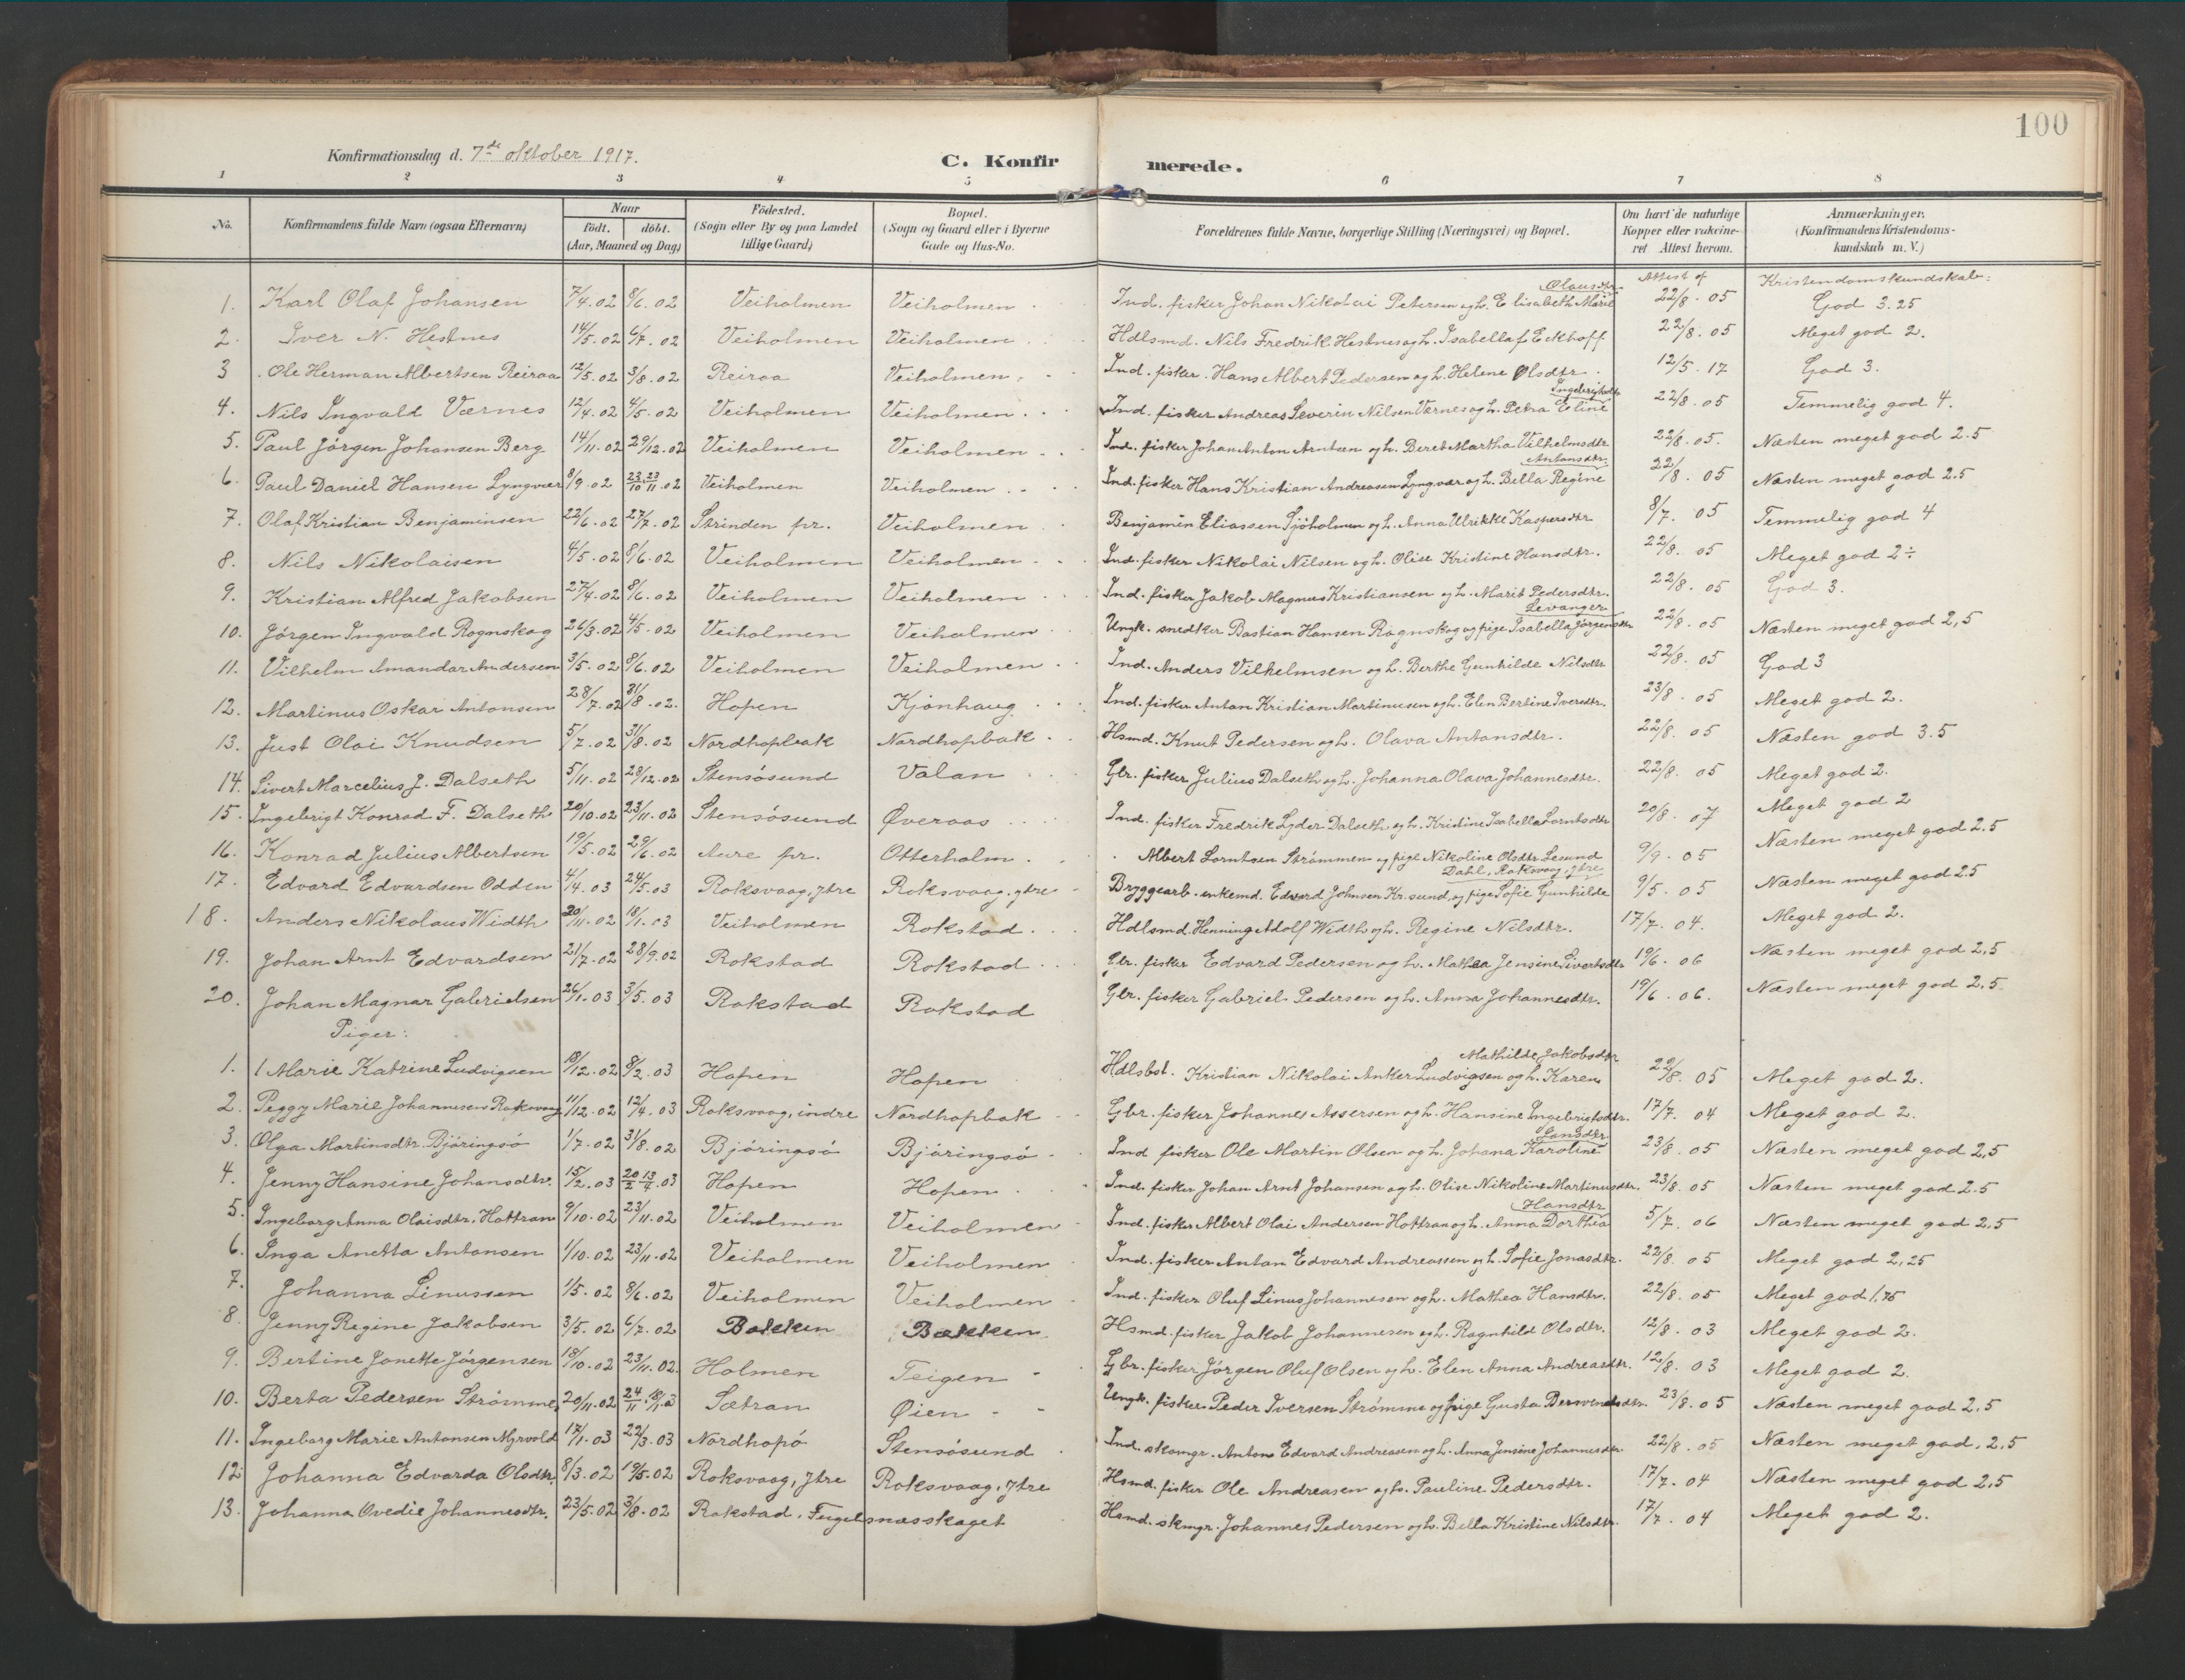 100
Konfirmationsdag d. 7de oktober 1917.
C. Konfirmerede.
1 2 3 4 5 6 7 8
No. Konfirmandens fulde Navn (ogsaa Efternavn) Naar født. døbt. (Aar, Maaned og Dag) Fødested. (Sogn eller By og paa Landet tillige Gaard) Bopæl. (Sogn og Gaard eller i Byerne Gade og Hus-No. Forældrenes fulde Navne, borgerlige Stilling (Næringsvei) og Bopæl. Om havt de naturlige Kopper eller vakcineret Attest herom. Anmærkninger. (Konfirmandens Kristendomskundskab m. V.)
Olausdtr. Attest af Kristendomskundskab:
1. Karl Olaf Johansen 7/4.02 8/6.02 Veiholmen Veiholmen Ind. fisker Johan Nikolai Petersen og h. Elisabeth Marie 22/8.05 God 3.25
2. Iver N. Hestnes 14/5.02 6/7.02 Veiholmen Veiholmen Hdlsmd. Nils Fredrik Hestnes og h. Isabella f. Eckhoff 22/8.05 Meget god 2.
3. Ole Herman Albertsen Reiraa 12/5.02 3/8.02 Reiraa Veiholmen Ind. fisker. Hans Albert Pedersen og h. Helene Olsdtr. 12/5.17 God 3.
4. Nils Ingvald Værnes 12/4.02 4/5.02 Veiholmen Veiholmen Ind. fisker Andreas Severin Nilsen Værnes og h. Petra Eline Ingebrigtsdtr 22/8.05 Temmelig god 4.
5. Paul Jørgen Johansen Berg 14/11.02 29/12.02 Veiholmen Veiholmen Ind. fisker Johan Anton Arntsen og h. Beret Martha Vilhelmsdtr 22/8.05. Næsten meget god 2.5
6. Paul Daniel Hansen Lyngvær 8/9.02 23/10 23/11.02 Veiholmen Veiholmen Ind. fisker Hans Kristian Andreasen Lyngvær og h. Bella Regine Antonsdtr. 22/8.05 Næsten meget god 2.5
7. Olaf Kristian Benjaminsen 22/6.02 27/7.02 Strinden pr. Veiholmen Benjamin Eliassen Sjøholmen og h. Anna Ulrikke Kaspersdtr 8/7.05 Temmelig god 4
8. Nils Nikolaisen 4/5.02 8/6.02 Veiholmen Veiholmen Ind. fisker Nikolai Nilsen og h. Olise Kristine Hansdtr. 22/8.05 Meget god 2÷
9. Kristian Alfred Jakobsen 27/4.02 8/6.02 Veiholmen Veiholmen Ind. fisker Jakob Magnus Kristiansen og h. Marit Pedersdtr. 22/8.05 God 3.
10. Jørgen Ingvald Rognskog 26/3.02 4/5.02 Veiholmen Veiholmen Ungk. snedker Bastian Hansen Rognskog og pige Isabella Jørgensdtr Levanger 22/8.05 Næsten meget god 2,5
11. Vilhelm Amandar Andersen 3/5.02 8/6.02 Veiholmen Veiholmen Ind. Anders Vilhelmsen og h. Berthe Gunhilde Nilsdtr 22/8.05 God 3
12. Martinus Oskar Antonsen 28/7.02 31/8.02. Hopen Kjønhaug Ind. fisker Anton Kristian Martinusen og h. Elen Bertine Iversdtr. 23/8.05 Meget god 2.
13. Just Olai Knudsen 5/7.02 31/8.02 Nordhopbak Nordhopbak Hsmd. Knut Pedersen og h. Olava Antonsdtr. 22/8.05 Næsten god 3.5
14. Sivert Marcelius J. Dalseth 5/11.02 28/12.02 Stensøsund Valan Gbr. fisker Julius Dalseth og h. Johanna Olava Johannesdtr. 22/8.05 Meget god 2.
15. Ingebrigt Konrad F. Dalseth 20/10.02 23/11.02 Stensøsund Øveraas Ind. fisker Fredrik Lyder Dalseth og h. Kristine Isabella Lorntsdtr 20/8.07 Meget god 2
16. Konrad Julius Albertsen 19/5.02 29/6.02 Aure pr. Otterholm Albert Lorntsen Strømmen og pige Nikoline Olsdtr Lesund 9/9.05 Næsten meget god 2.5
17. Edvard Edvardsen Odden 4/4.03 24/5.03 Roksvaag, ytre Roksvaag, ytre Bryggearb. enkemd. Edvard Johnsen Kr.sund, og pige Sofie Gunhilde Dahl, Roksvaag, ytre 9/5.05 Næsten meget god 2.5
18. Anders Nikolaus Width 20/11.02 18/1.03 Veiholmen Rokstad Hdlsmd. Henning Adolf Width og h. Regine Nilsdtr. 17/7.04. Meget god 2.
19. Johan Arnt Edvardsen 21/7.02 28/9.02 Rokstad Rokstad Gbr. fisker Edvard Pedersen og h. Mathea Jensine Sivertsdtr 19/6.06 Næsten meget god 2,5
20. Johan Magnar Gabrielsen 26/1.03 3/5.03 Rokstad Rokstad Gbr. fisker Gabriel Pedersen og h. Anna Johannesdtr. 19/6.06. Næsten meget god 2,5
Piger:
1. Marie Katrine Ludvigsen 18/12.02 8/2.03 Hopen Hopen Hdlsbst. Kristian Nikolai Anker Ludvigsen og h. Karen Mathilde Jakobsdtr 22/8.05 Meget god 2.
2. Peggy Marie Johannesen Roksvaag 11/12.02 12/4.03 Roksvaag, indre Nordhopbak Gbr. fisker Johannes Assersen og h. Hansine Ingebrigtsdtr. 17/7.04 Meget god 2.
3. Olga Martinsdtr. Bjøringsø 1/7.02 31/8.02 Bjøringsø Bjøringsø Ind fisker Ole Martin Olsen og h. Johana Karoline 23/8.05 Næsten meget god 2,5
4. Jenny Hansine Johansdtr. 15/2.03 20/2 13/4.03 Hopen Hopen Ind. fisker Johan Arnt Johansen og h. Olise Nikoline Martinusdtr. 23/8.05 Næsten meget god 2.5
5. Ingeborg Anna Olaisdtr. Hottran 9/10.02 23/11.02 Veiholmen Veiholmen Ind. fisker Albert Olai Andersen Hottran og h. Anna Dorthea Hansdtr 5/7.06 Næsten meget god 2,5
6. Inga Anetta Antonsen 1/10.02 23/11.02 Veiholmen Veiholmen Ind. fisker Anton Edvard Andreassen og h. Sofie Jonasdtr. 22/8.05 Meget god 2,25
7. Johanna Linussen 1/5.02 8/6.02 Veiholmen Veiholmen Ind. fisker Oluf Linus Johannesen og h. Mathea Hansdtr. 22/8.05 Meget god 1,75
8. Jenny Regine Jakobsen 3/5.02 6/7.02 Bakken Bakken Hsmd. fisker Jakob Johannesen og h. Ragnhild Olsdtr. 12/8.03 Meget god 2.
9. Bertine Jonette Jørgensen 18/10.02 23/11.02. Holmen Teigen Gbr. fisker Jørgen Oluf Olsen og h. Elen Anna Andreasdtr. 12/8.03 Meget god 2.
10. Berta Pedersen Strømme 20/11.02 24/11 Sætran Øien Ungk. fisker Peder Iversen Strømme og pige Gusta 23/8.05 Næsten meget god 2,5
11. Ingeborg Marie Antonsen Myrvold 17/1.03 22/3.03 Nordhopø Stensøsund Ind. skomgr. Anton Edvard Andreasen og h. Anna Jensine Johannesdtr 22/8.05 Næsten meget god. 2,5
12. Johanna Edvarda Olsdtr. 8/3.02 19/5.02 Roksvaag, ytre Roksvaag, ytre Hsmd. fisker Ole Andreasen og h. Pauline Pedersdtr. 17/7.04 Næsten meget god 2,5
13. Johanna Ovedie Johannesdtr. 23/5.02 3/8.02 Rokstad, Fuglesnæsskaget Hsmd. skmgr. Johannes Pedersen og h. Bella Kristine Nilsdtr. 17/7.04 Meget god 2.